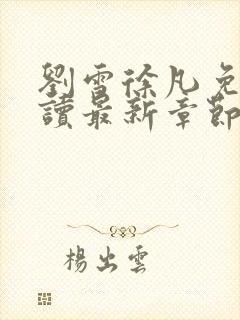 劉雪徐凡免
讀最新章節
楊出雲